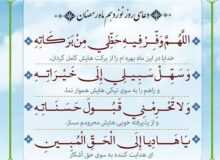 دعای روز نوزدهم ماه رمضان
اللّهُمَّ وَفِّرْ فيهِ حَظّي مِنْ بَرَكاتِهِ
خدایا در این ماه بهره ام را از برکت هایش کامل گردان،
وَ سَهِّلْ سَبيلي إِلى خَيْراتِهِ
و راهم را به سوی نیکی هایش هموار نما،
وَلا تَحْرِمْني قَبُولَ حَسَناتِهِ
و از پذیرفته خوبی هایش محرومم مساز،
يا هادِياً إِلَى الْحَقِّ الْمُبينِ
ای هدایت کننده به سوی حق آشکار